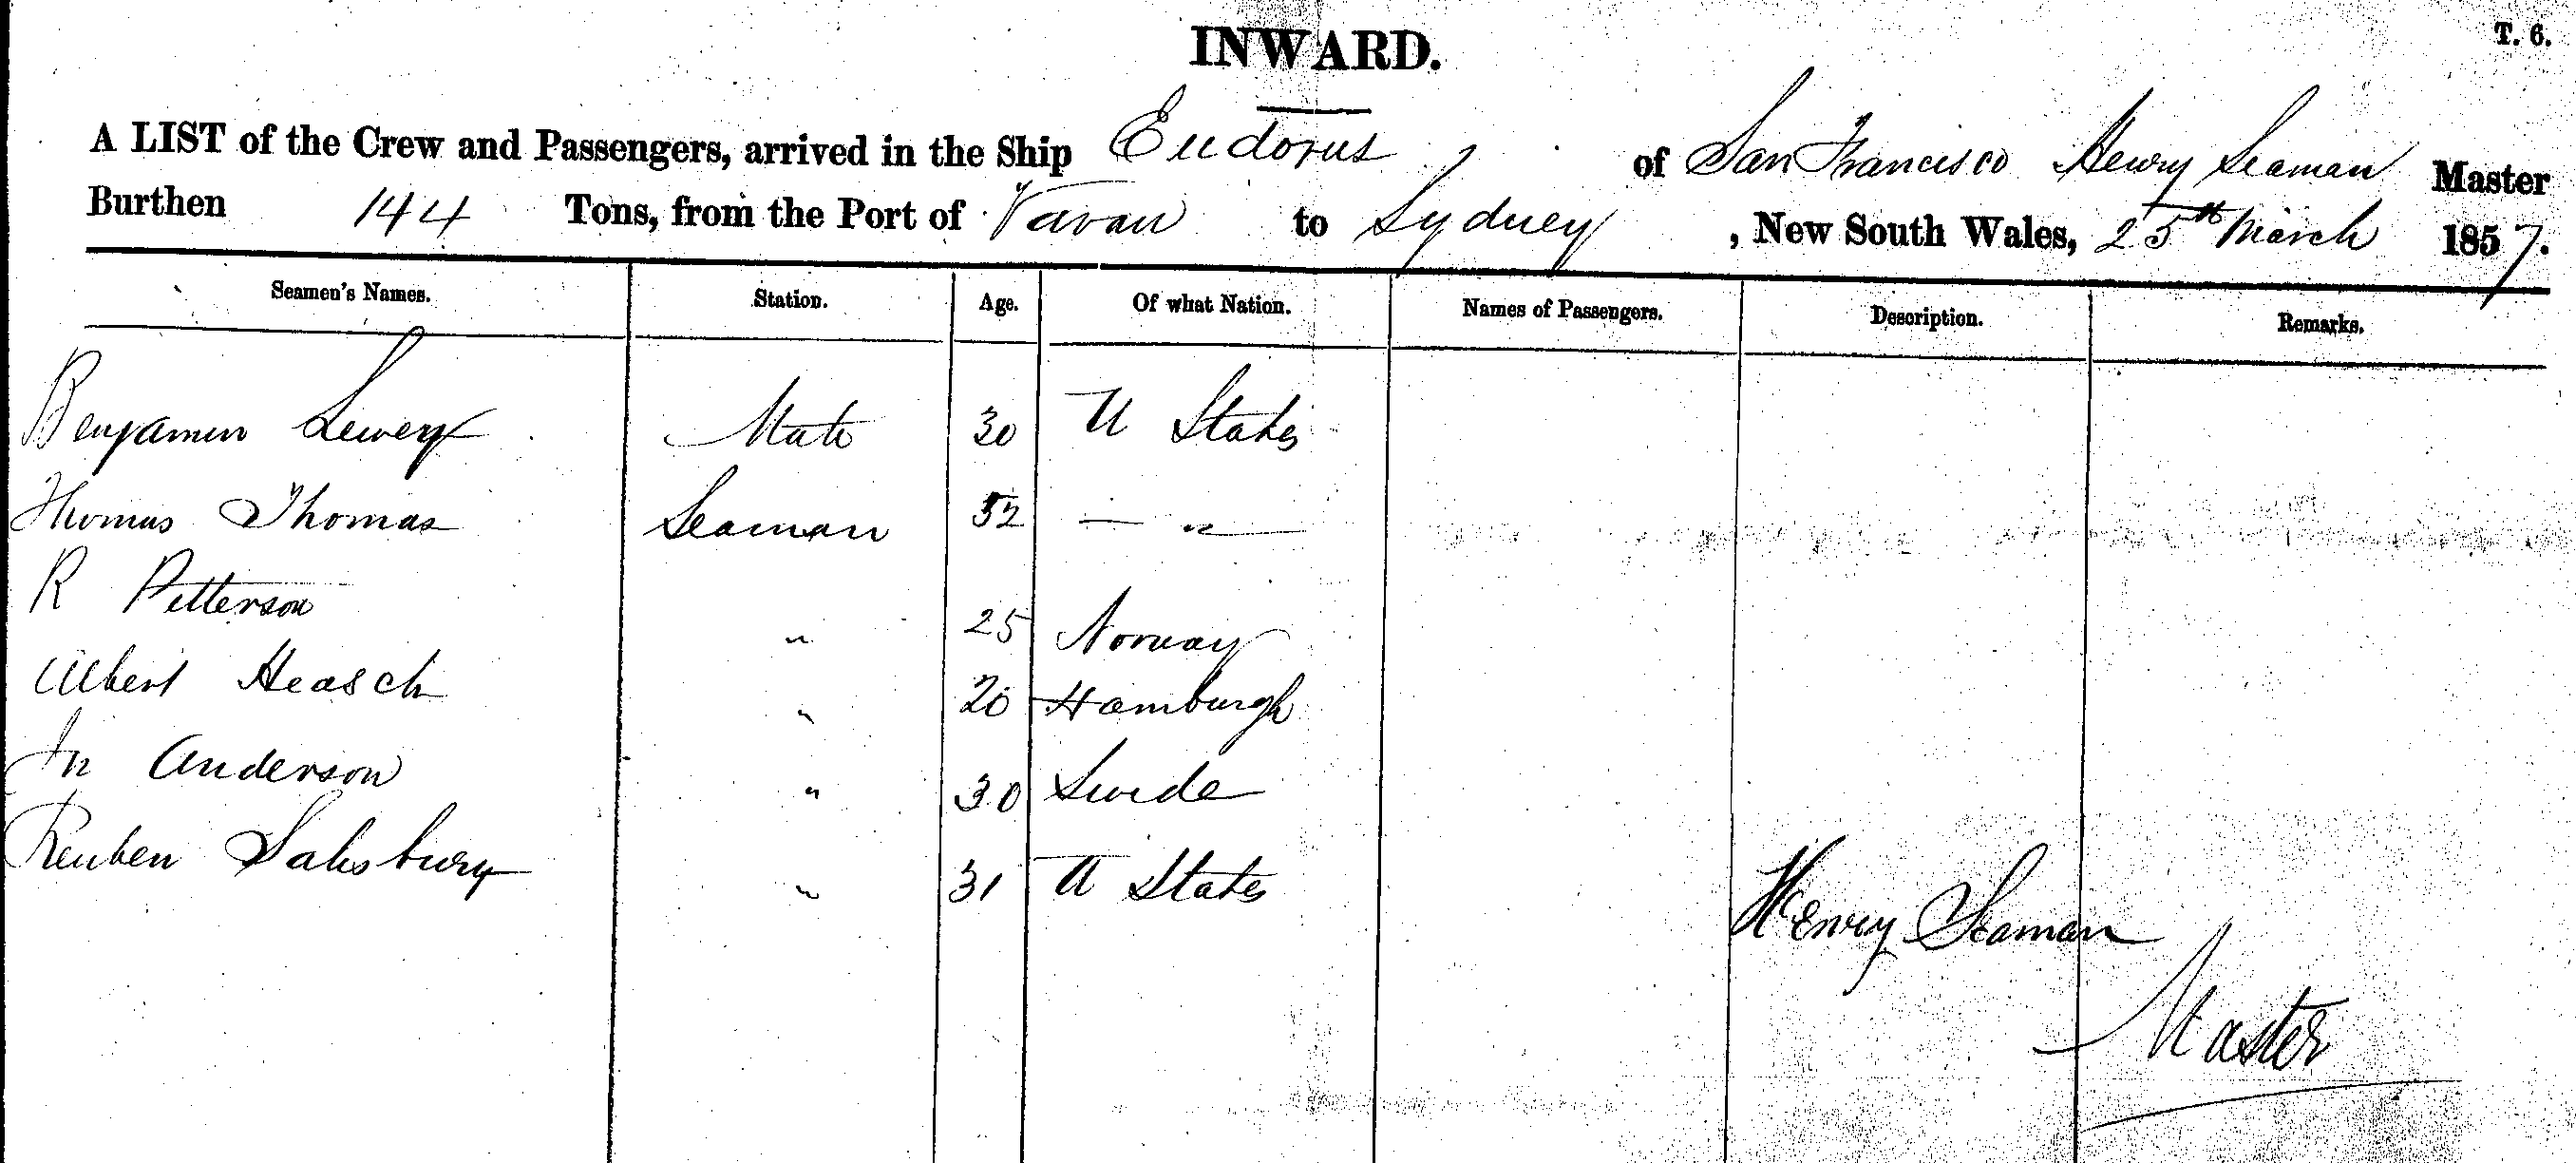 INWARD.
T. 6.
A LIST of the Crew and Passengers, arrived in the Ship Eudorus of San Francisco Henry Seaman Master
Burthen 144 Tons, from the Port of Vavau to Sydney, New South Wales, 25th March 1857.
Seamen's Names. Station. Age. Of what Nation. Names of Passengers. Description. Remarks.
Benjamin Mate 30 U States
Thomas Thomas Seaman 32 — " —
R Petterson " 25 Norway
Albert Heasch " 20 Hamburgh
Jn Anderson " 30 Swede
Reuben Salisbury " 31 U States
Henry Seaman
Master